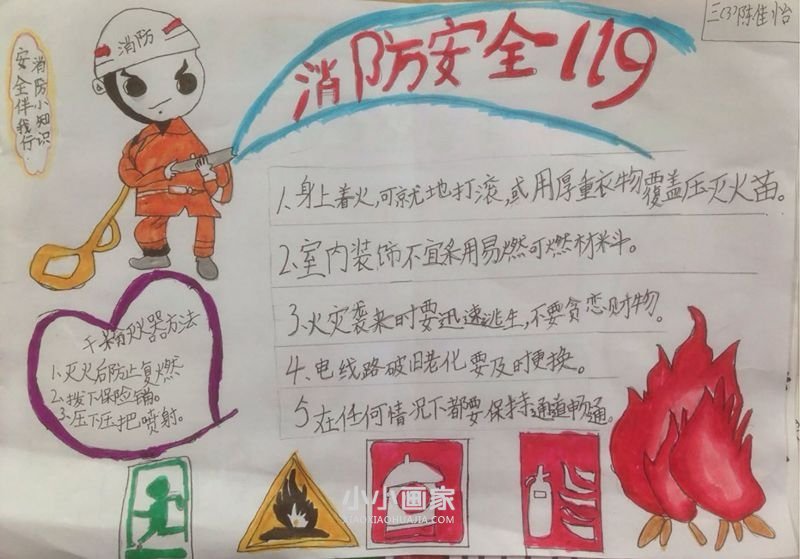 三(3)陈佳怡
消防安全119
消防
消防小知识
安全伴我行
1.身上着火,可就地打滚,或用厚重衣物覆盖压灭火苗。
2.室内装饰不宜采用易燃可燃材料。
3.火灾袭来时要迅速逃生,不要贪恋财物。
4.电线路破旧老化要及时更换。
5.在任何情况下都要保持通道畅通。
干粉灭火器方法
1.灭火后防止复燃
2.拔下保险销。
3.压下压把喷射。
小小画家
XIAOXIAOHUAJIA.COM